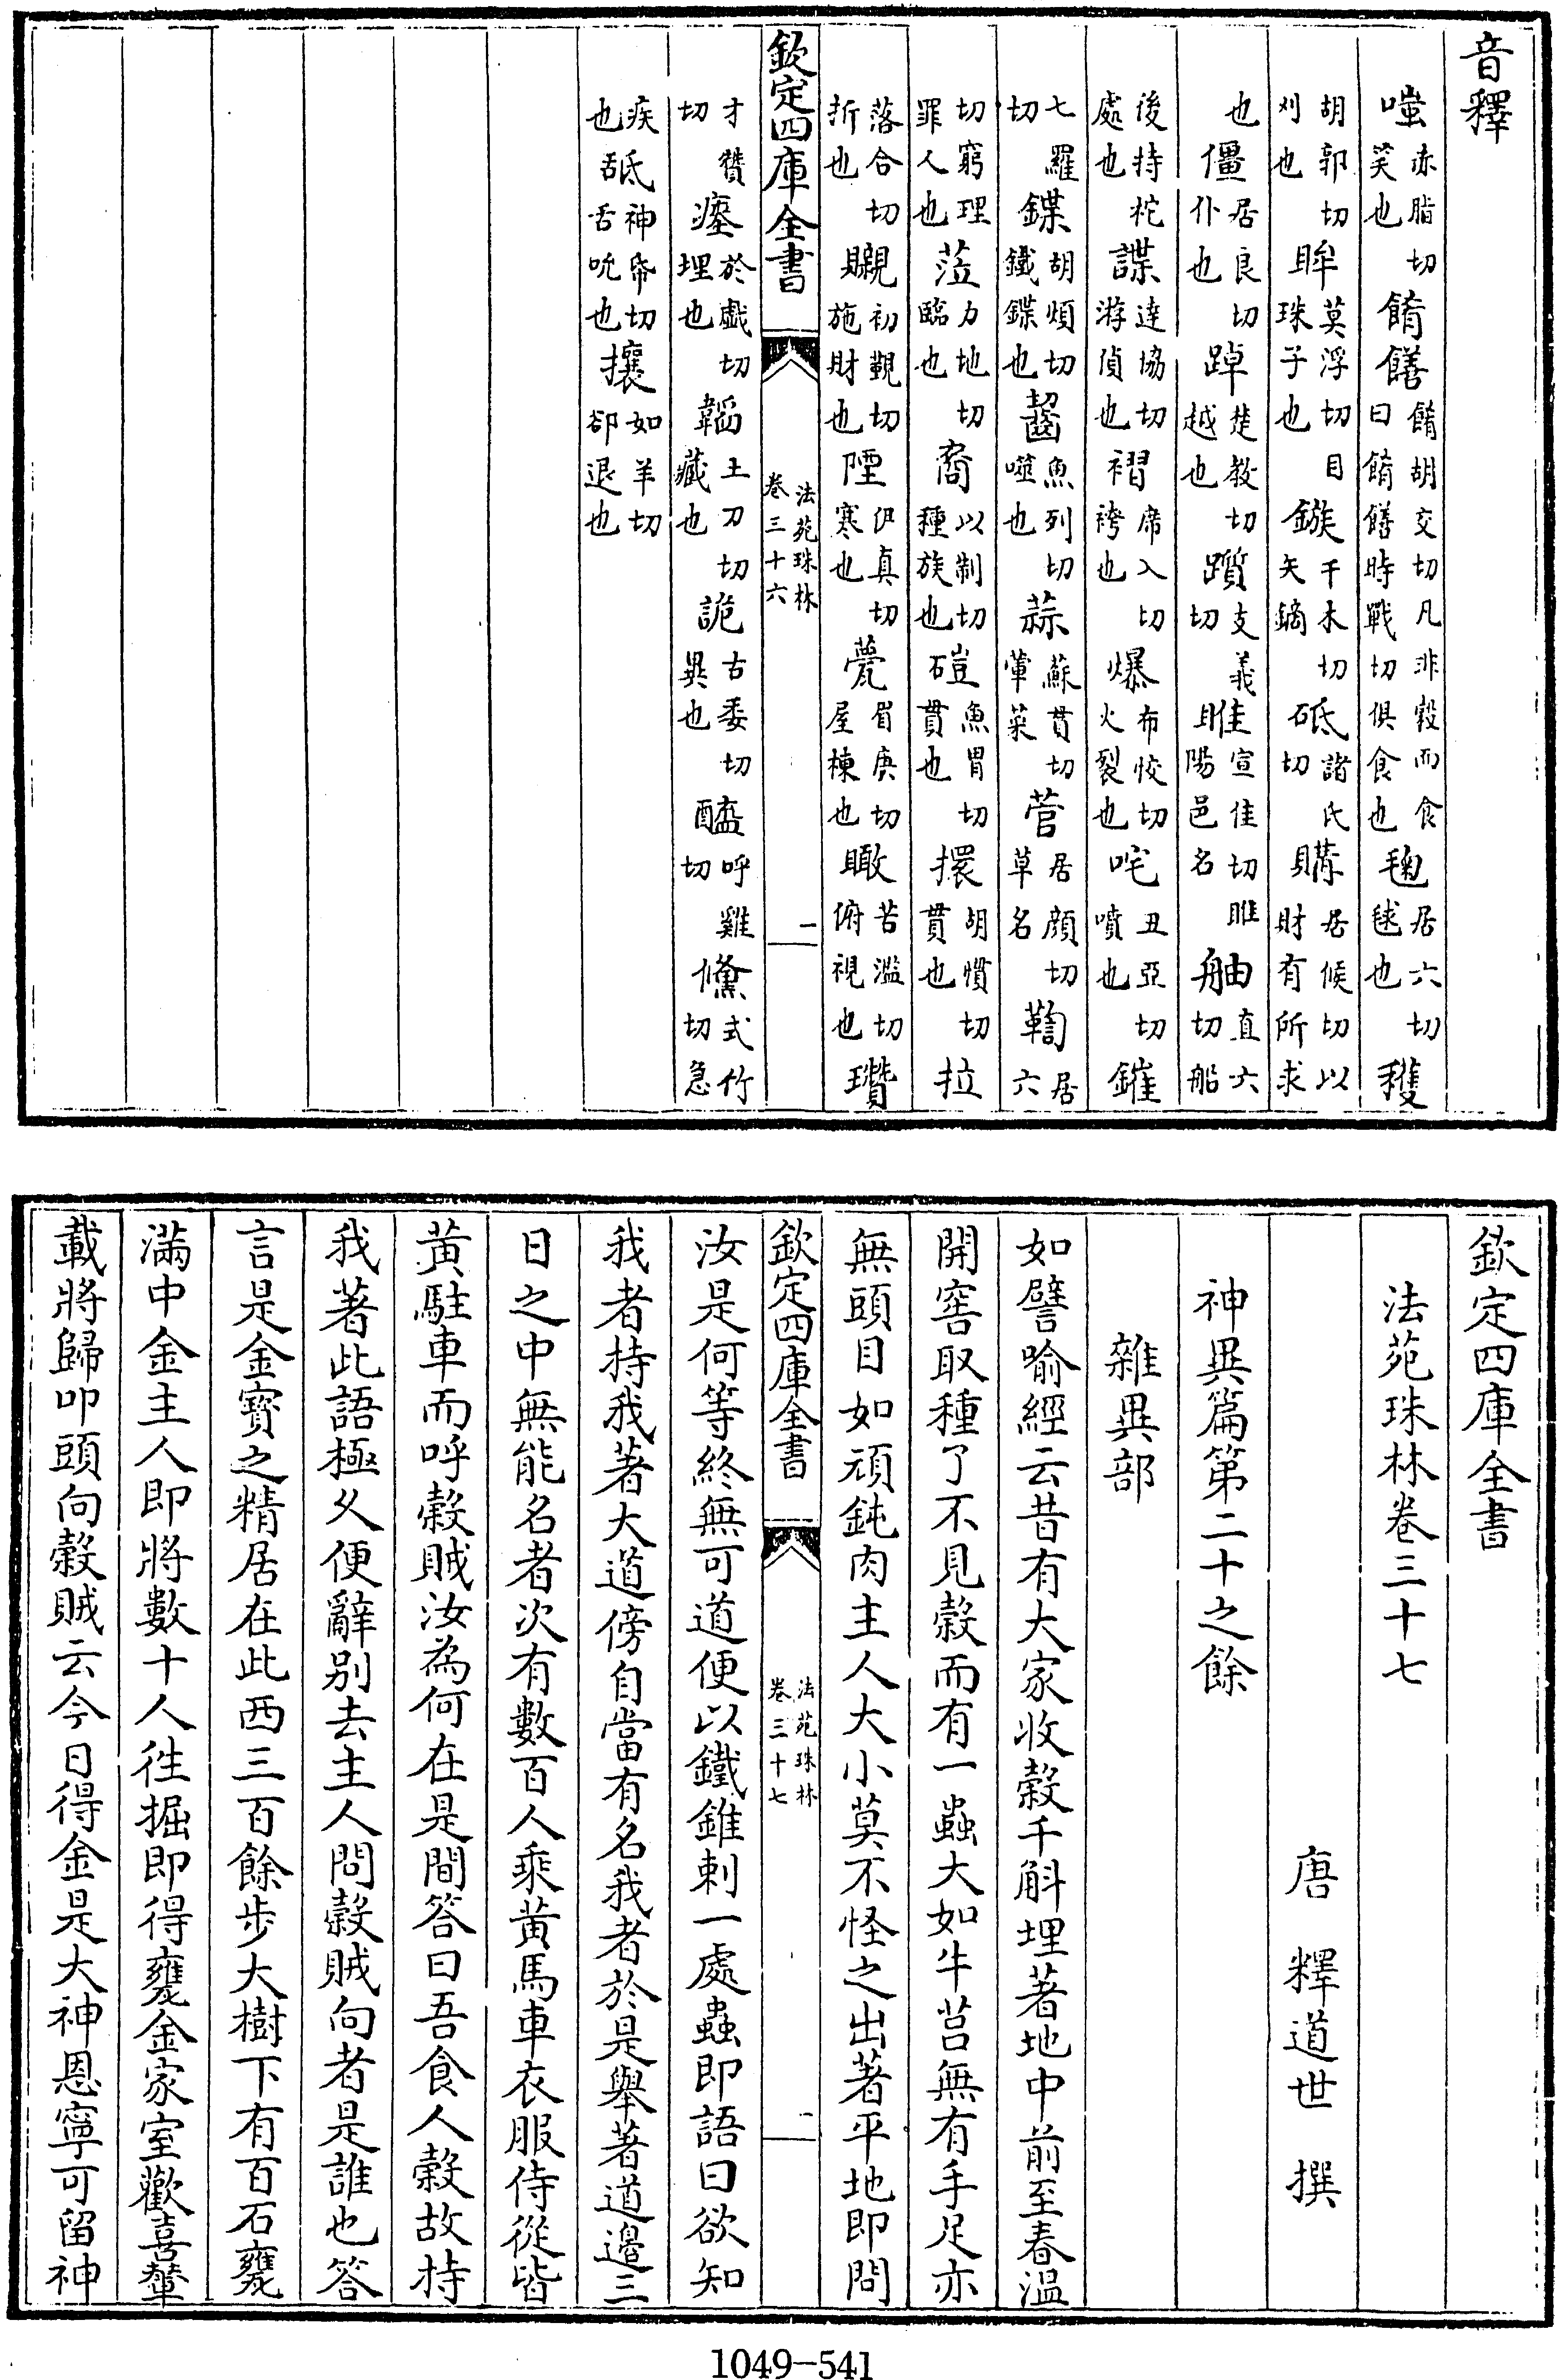 音釋
嗤赤脂切笑也餚饍餚胡交切凡非穀而食曰餚饍時戰切俱食也毱居六切毬也穫
胡郭切刈也眸莫浮切目珠子也鏃千木切矢鏑砥諸氏切購居候切以財有所求
也僵居良切仆也踔楚教切越也躓支義切睢宣佳切睢陽邑名舳直六切船
後持柁處也諜達協切游偵也褶席入切袴也爆布恔切火裂也咤丑亞切噴也鏙
七羅切鍱胡煩切鐵鍱也齧魚列切噬也蒜蘇貫切葷菜菅居顏切草名鞫居六
切窮理罪人也蒞力地切臨也裔以制切種族也磑魚胃切貫也擐胡慣切貫也拉
落合切折也䞋初覲切施財也陻伊真切寒也甍眉庚切屋棟也瞰苦濫切俯視也瓚
欽定四庫全書 法苑珠林卷三十六 一
才贊切瘞於戲切埋也韜土刀切藏也詭古委切異也醯呼雞切儵式竹切急
疾也舐神帋切舌吮也攘如羊切卻退也
欽定四庫全書
法苑珠林卷三十七
唐 釋道世 撰
神異篇第二十之餘
雜異部
如譬喻經云昔有大家收穀千斛埋著地中前至春溫
開窖取種了不見穀而有一蟲大如牛莒無有手足亦
無頭目如頑鈍肉主人大小莫不怪之出著平地即問
欽定四庫全書 法苑珠林卷三十七 一
汝是何等終無可道便以鐵錐刺一處蟲即語曰欲知
我者持我著大道傍自當有名我者於是舉著道邊三
日之中無能名者次有數百人乘黃馬車衣服侍從皆
黃駐車而呼穀賊汝為何在是間答曰吾食人穀故持
我著此語極久便辭別去主人問穀賊向者是誰也答
言是金寶之精居在此西三百餘步大樹下有百石甕
滿中金主人即將數十人往掘即得甕金家室歡喜輦
載將歸叩頭向穀賊云今日得金是大神恩寧可留神
1049-541